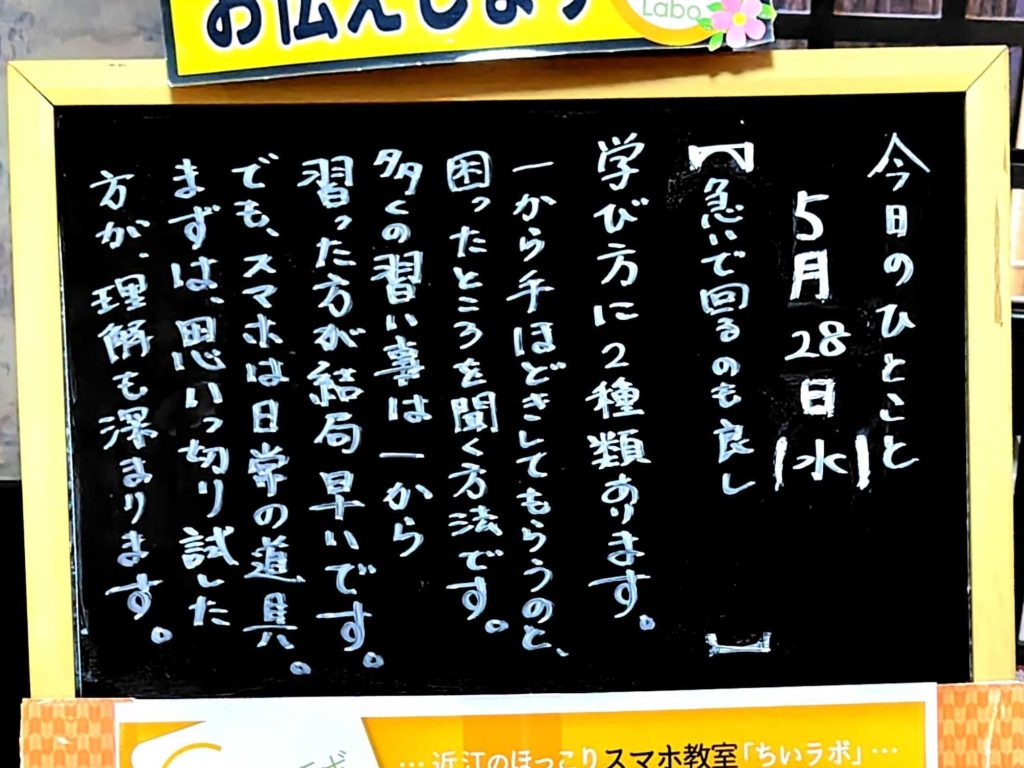 お伝えします
Labo
今日のひとこと
5月28日(水)
【急いで回るのも良し】
学び方に2種類あります。
一から手ほどきしてもらうのと、
困ったところを聞く方法です。
多くの習い事は一から
習った方が結局早いです。
でも、スマホは日常の道具。
まずは、思いっ切り試した
方が、理解も深まります。
…近江のほっこりスマホ教室「ちいラボ」…